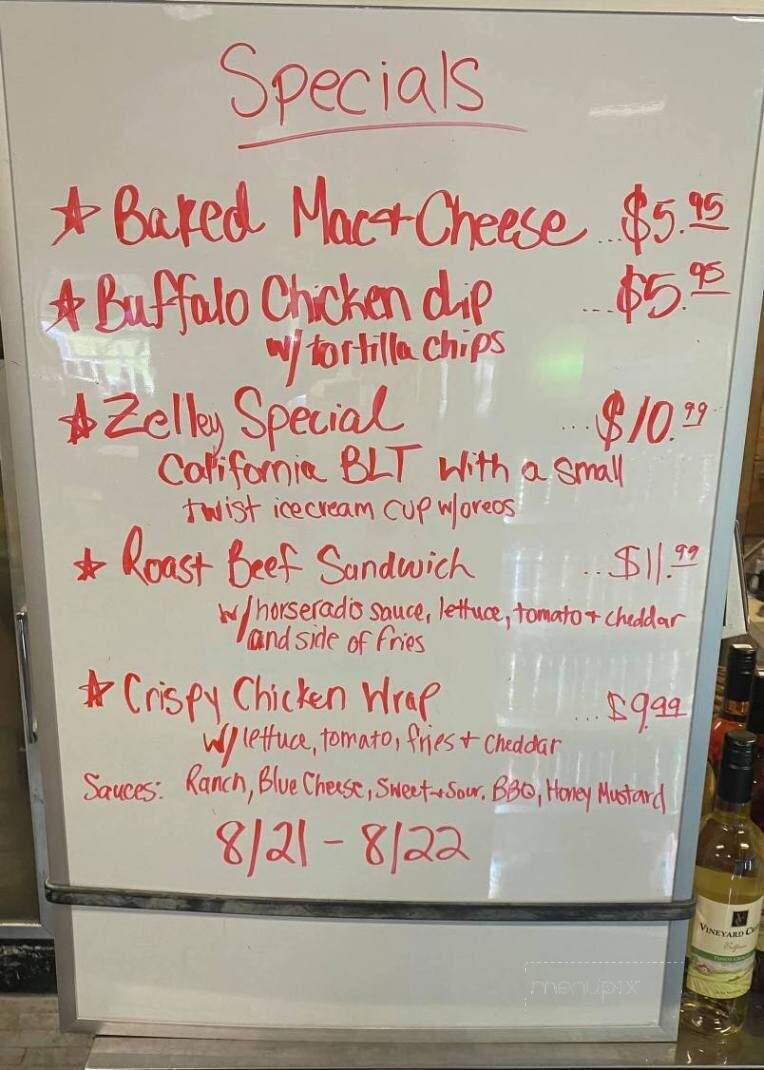 Specials
☆ Baked Mac + Cheese ... $5.95
☆ Buffalo Chicken dip ... $5.95
w/ tortilla chips
☆ Zelley Special ... $10.99
California BLT with a small
twist icecream cup w/oreos
☆ Roast Beef Sandwich ... $11.99
w/ horseradis sauce, lettuce, tomato + cheddar
and side of fries
☆ Crispy Chicken Wrap ... $9.99
w/ lettuce, tomato, fries + cheddar
Sauces: Ranch, Blue Cheese, Sweet + Sour, BBQ, Honey Mustard
8/21 - 8/22
VINEYARD
menupix